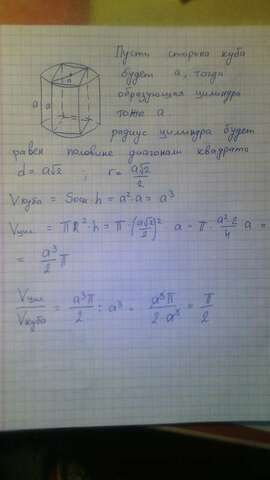 Пусть сторона куба
будет a, тогда
образующая цилиндра
тоже a
a a r
радиус цилиндра будет
равен половине диагонали квадрата
d = a√2 ; r = a√2/2
Vкуба = Sосн · h = a² · a = a³
Vцил = πR² · h = π · (a√2/2)² · a = π · a²·2/4 · a =
= a³/2 π
Vцил/Vкуба = a³π/2 : a³ = a³π/2·a³ = π/2